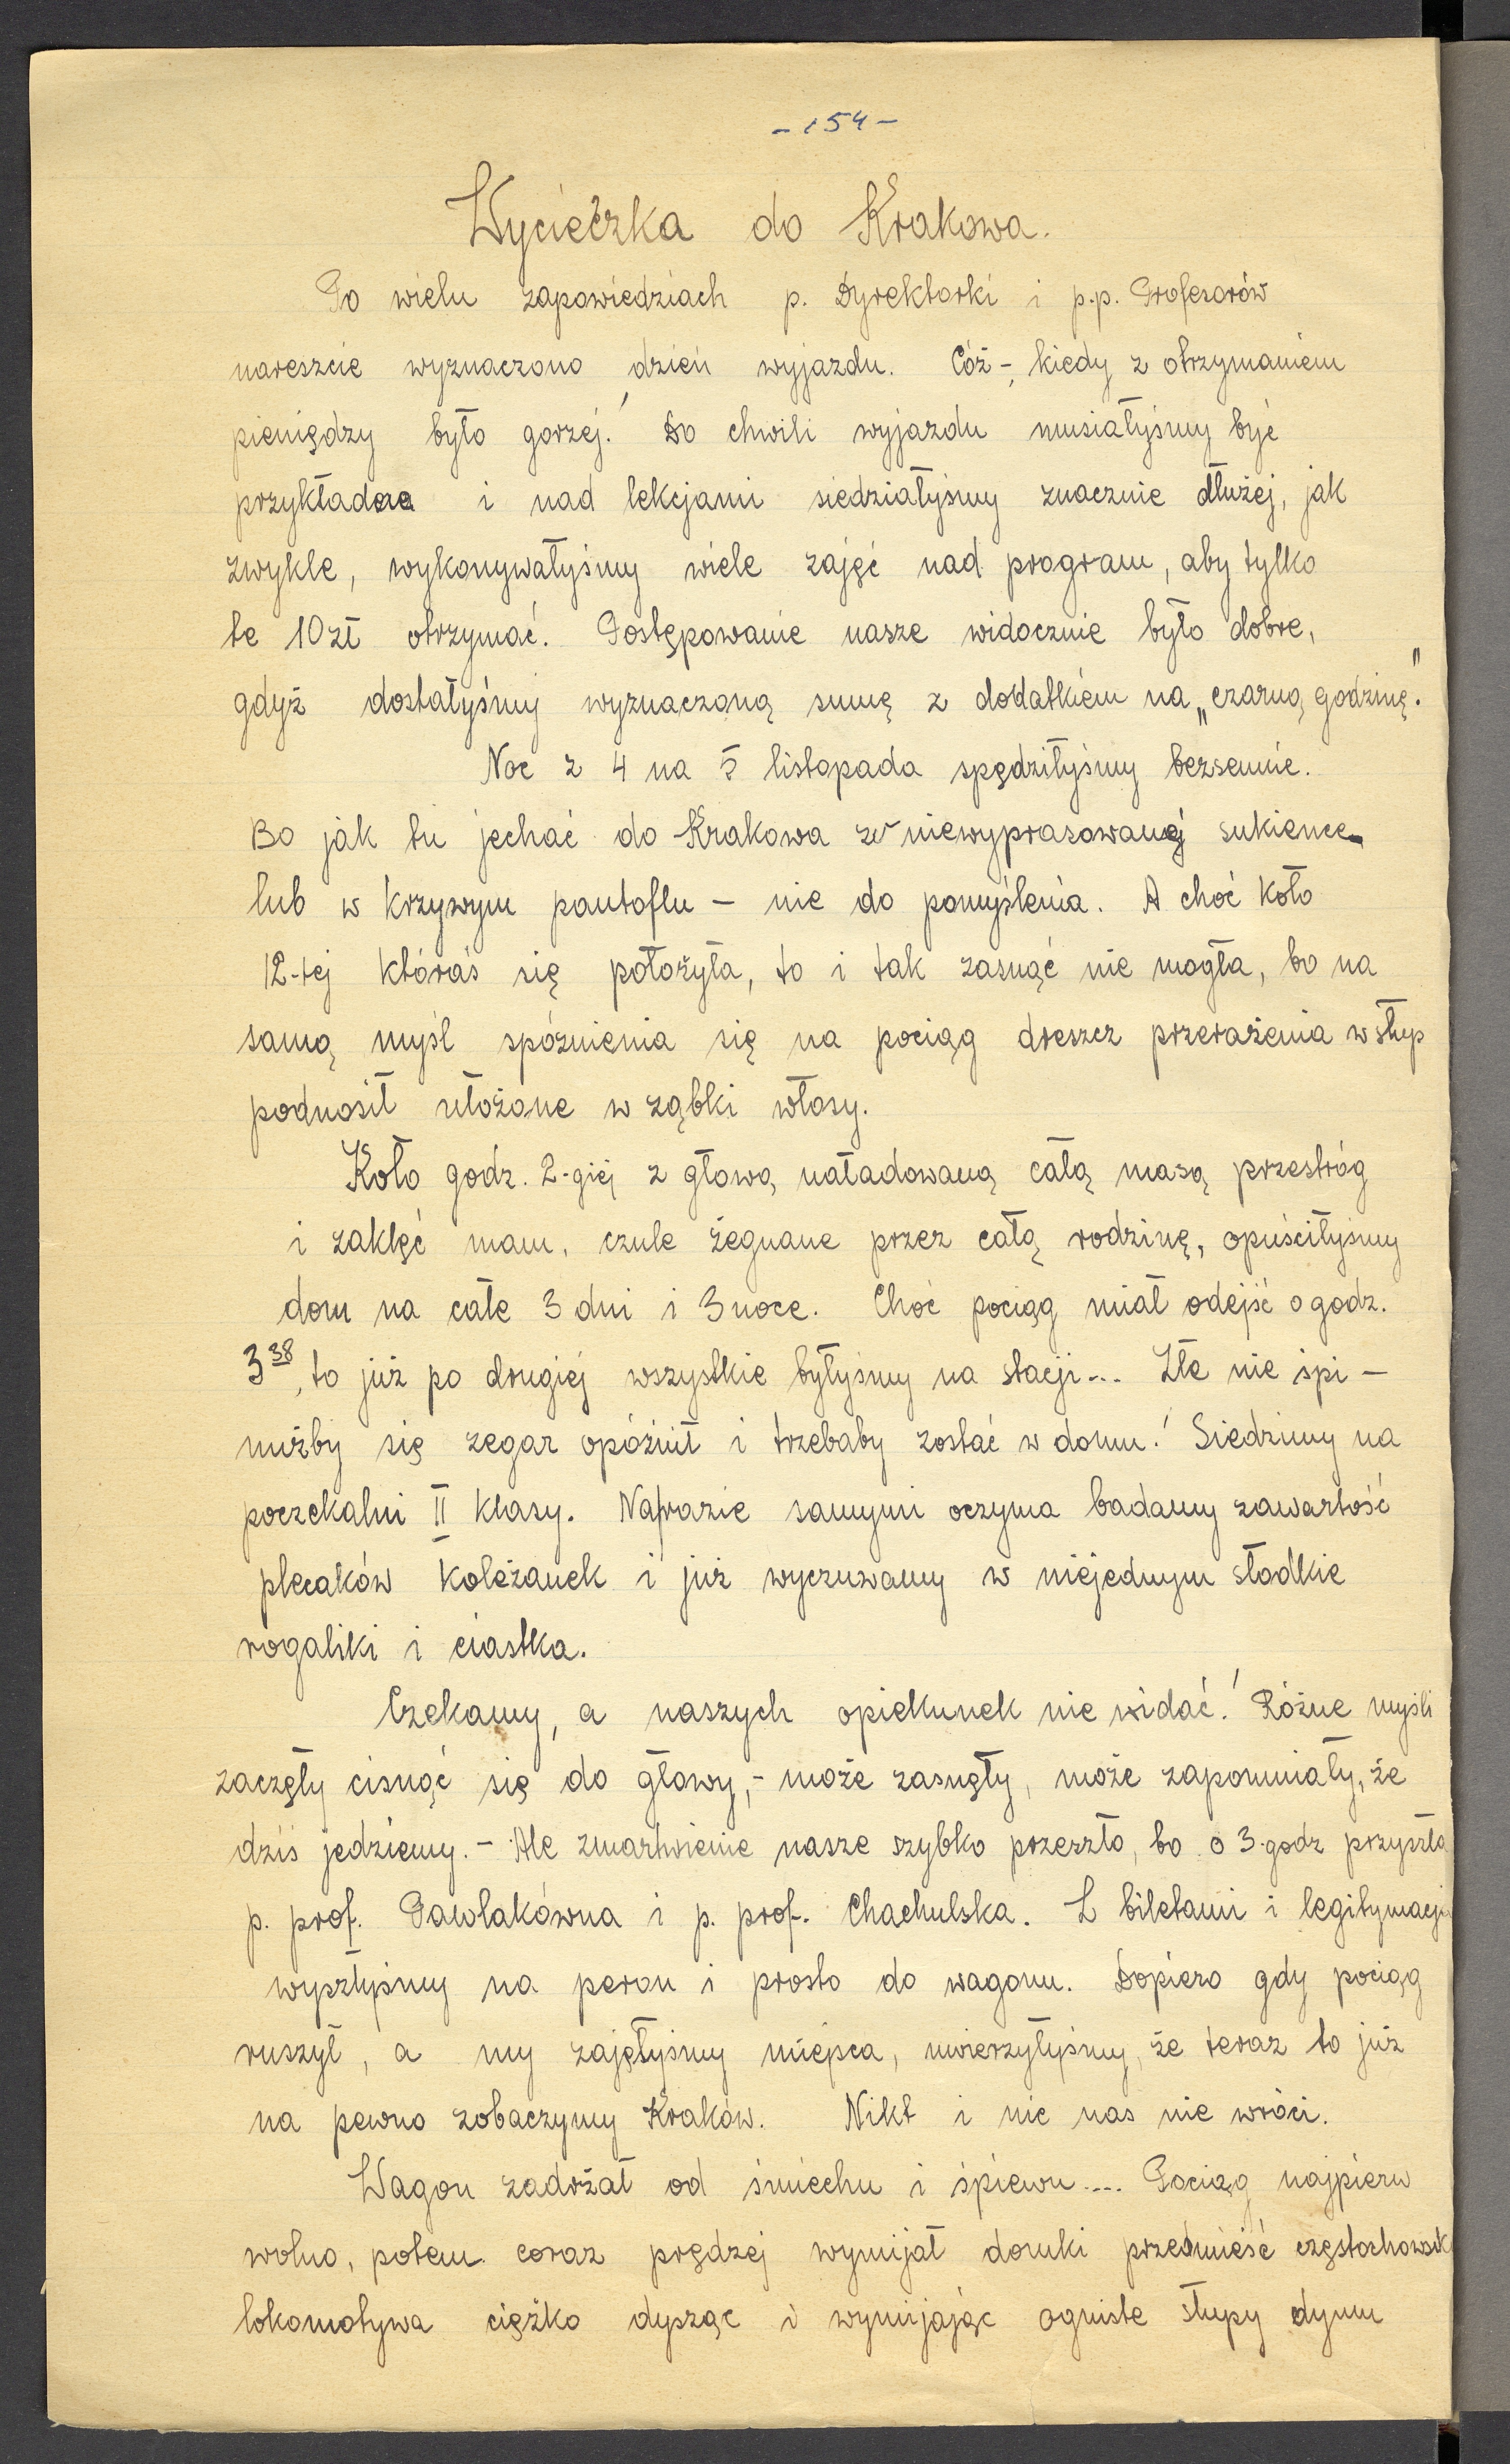 - 154 -
Wycieczka do Krakowa.
Po wielu zapowiedziach p. Dyrektorki i p.p. Profesorów
nareszcie wyznaczono dzień wyjazdu. Cóż -, kiedy z otrzymaniem
pieniędzy było gorzej! Do chwili wyjazdu musiałyśmy być
przykładne i nad lekcjami siedziałyśmy znacznie dłużej, jak
zwykle, wykonywałyśmy wiele zajęć nad program, aby tylko
te 10 zł otrzymać. Postępowanie nasze widocznie było dobre,
gdyż dostałyśmy wyznaczoną sumę z dodatkiem na „czarną godzinę."
Noc z 4 na 5 listopada spędziłyśmy bezsennie.
Bo jak tu jechać do Krakowa w niewyprasowanej sukience
lub w krzywym pantoflu – nie do pomyślenia. A choć koło
12-tej któraś się położyła, to i tak zasnąć nie mogła, bo na
samą myśl spóźnienia się na pociąg dreszcz przerażenia w słup
podnosił ułożone w ząbki włosy.
Koło godz. 2-giej z głową naładowaną całą masą przestróg
i zaklęć mam, czule żegnane przez całą rodzinę, opuściłyśmy
dom na całe 3 dni i 3 noce. Choć pociąg miał odejść o godz.
3³⁸, to już po drugiej wszystkie byłyśmy na stacji... Złe nie śpi –
nużby się zegar opóźnił i trzebaby zostać w domu! Siedzimy na
poczekalni II klasy. Narazie samymi oczyma badamy zawartość
plecaków koleżanek i już wyczuwamy w niejednym słodkie
rogaliki i ciastka.
Czekamy, a naszych opiekunek nie widać! Różne myśli
zaczęły cisnąć się do głowy, - może zasnęły, może zapomniały, że
dziś jedziemy. - Ale zmartwienie nasze szybko przeszło, bo o 3-godz przyszła
p. prof. Pawlakówna i p. prof. Chachulska. Z biletami i legitymacją
wyszłyśmy na peron i prosto do wagonu. Dopiero gdy pociąg
ruszył, a my zajęłyśmy miejsca, uwierzyłyśmy, że teraz to już
na pewno zobaczymy Kraków. Nikt i nic nas nie wróci.
Wagon zadrżał od śmiechu i śpiewu.... Pociąg najpierw
wolno, potem coraz prędzej wymijał domki przedmieść częstochowsk
lokomotywa ciężko dysząc i wymijając ogniste słupy dymu